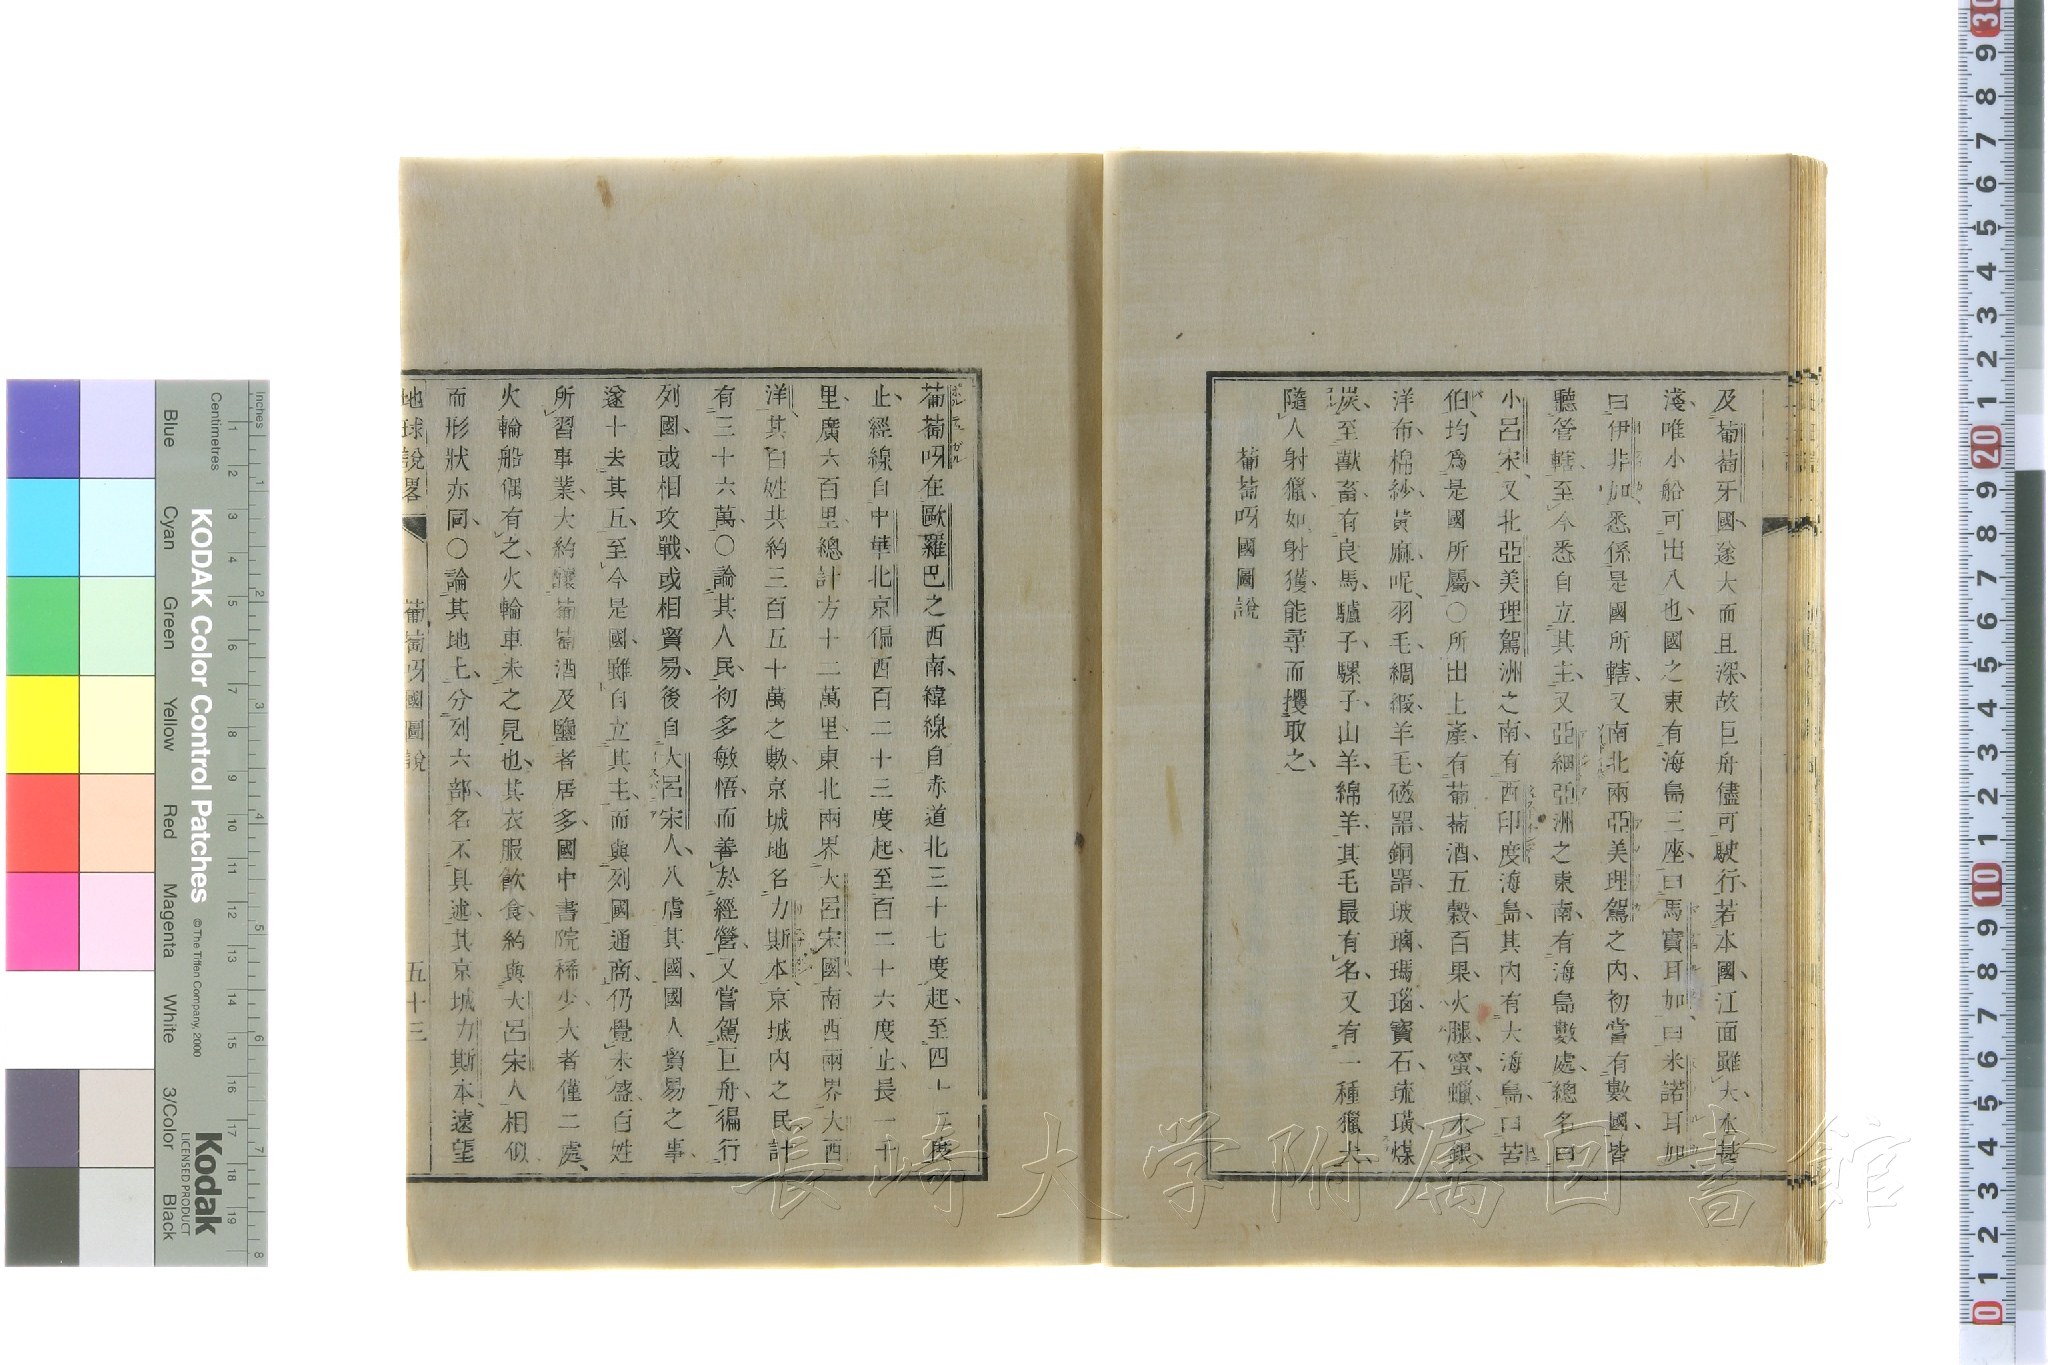 及葡萄牙國遂大而且深故巨舟儘可駛行若本國江面雖大本甚
淺唯小船可出入也國之東有海島三座曰馬實耳加曰米諾耳加
曰伊非加悉係是國所轄又南北兩亞美理駕之內初當有數國皆
聽管轄至今悉自立其主又亞細亞洲之東南有海島數處總名曰
小呂宋又北亞美理駕洲之南有西印度海島其內有大海島曰苦
伯均爲是國所屬○所出土產有葡萄酒五穀百果火腿蜜蠟水銀
洋布棉紗黃麻呢羽毛綢緞羊毛磁器銅器玻璃瑪瑙寶石琉璜煤
炭至獸畜有良馬驢子騾子山羊綿羊其毛最有名又有一種獵犬
隨人射獵如射獲能尋而攫取之
葡萄呀國圖說
葡萄呀在歐羅巴之西南緯線自赤道北三十七度起至四十二度
止經線自中華北京偏西百二十三度起至百二十六度止長一千
里廣六百里總計方十二萬里東北兩界大呂宋國南西兩界大西
洋其百姓共約三百五十萬之數京城地名力斯本京城內之民計
有三十六萬○論其人民初多敏悟而善於經營又嘗駕巨舟徧行
列國或相攻戰或相貿易後自大呂宋人入虐其國國人貿易之事
遂十去其五至今是國雖自立其主而與列國通商仍覺未盛百姓
所習事業大約釀葡萄酒及鹽者居多國中書院稀少大者僅二處
火輪船偶有之火輪車未之見也其衣服飲食約與大呂宋人相似
而形狀亦同○論其地土分列六部名不具述其京城力斯本遠望
地球說畧 葡萄呀國圖說 五十三
長崎大学附属図書館
KODAK Color Control Patches
© The Tiffen Company, 2000
Kodak
LICENSED PRODUCT
Inches
Centimetres
Blue Cyan Green Yellow Red Magenta White 3/Color Black